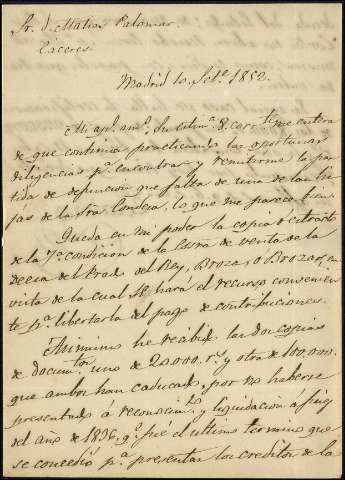 Sr. D. Matias Palomar.
Cáceres
Madrid 10 Set.e 1852.
Mi ap.do am.o: Su estim.a 8 corr.te me entera
de que continúa practicando las oportunas
diligencias p.a encontrar y remitirme la par
tida de defuncion que falta de una de las hi
jas de la Sra. Condesa, lo que me parece bien.
Queda en mi poder la copia ó estracto
de la 7.a condicion de la Escra. de venta de la
Deesa del Prado del Rey, Brozas ó Brozas, en
vista de la cual se hará el recurso convenien
te p.a libertarla del pago de contribuciones.
Asimismo he recibido las dos copias
de docum.tos uno de 20000 r.s y otro de 100,000.
que ambos han caducado, por no haberse
presentado á reconocim.to y liquidacion á fines
del año de 1836, q.e fué el ultimo termino que
se concedió p.a presentar los creditos de la